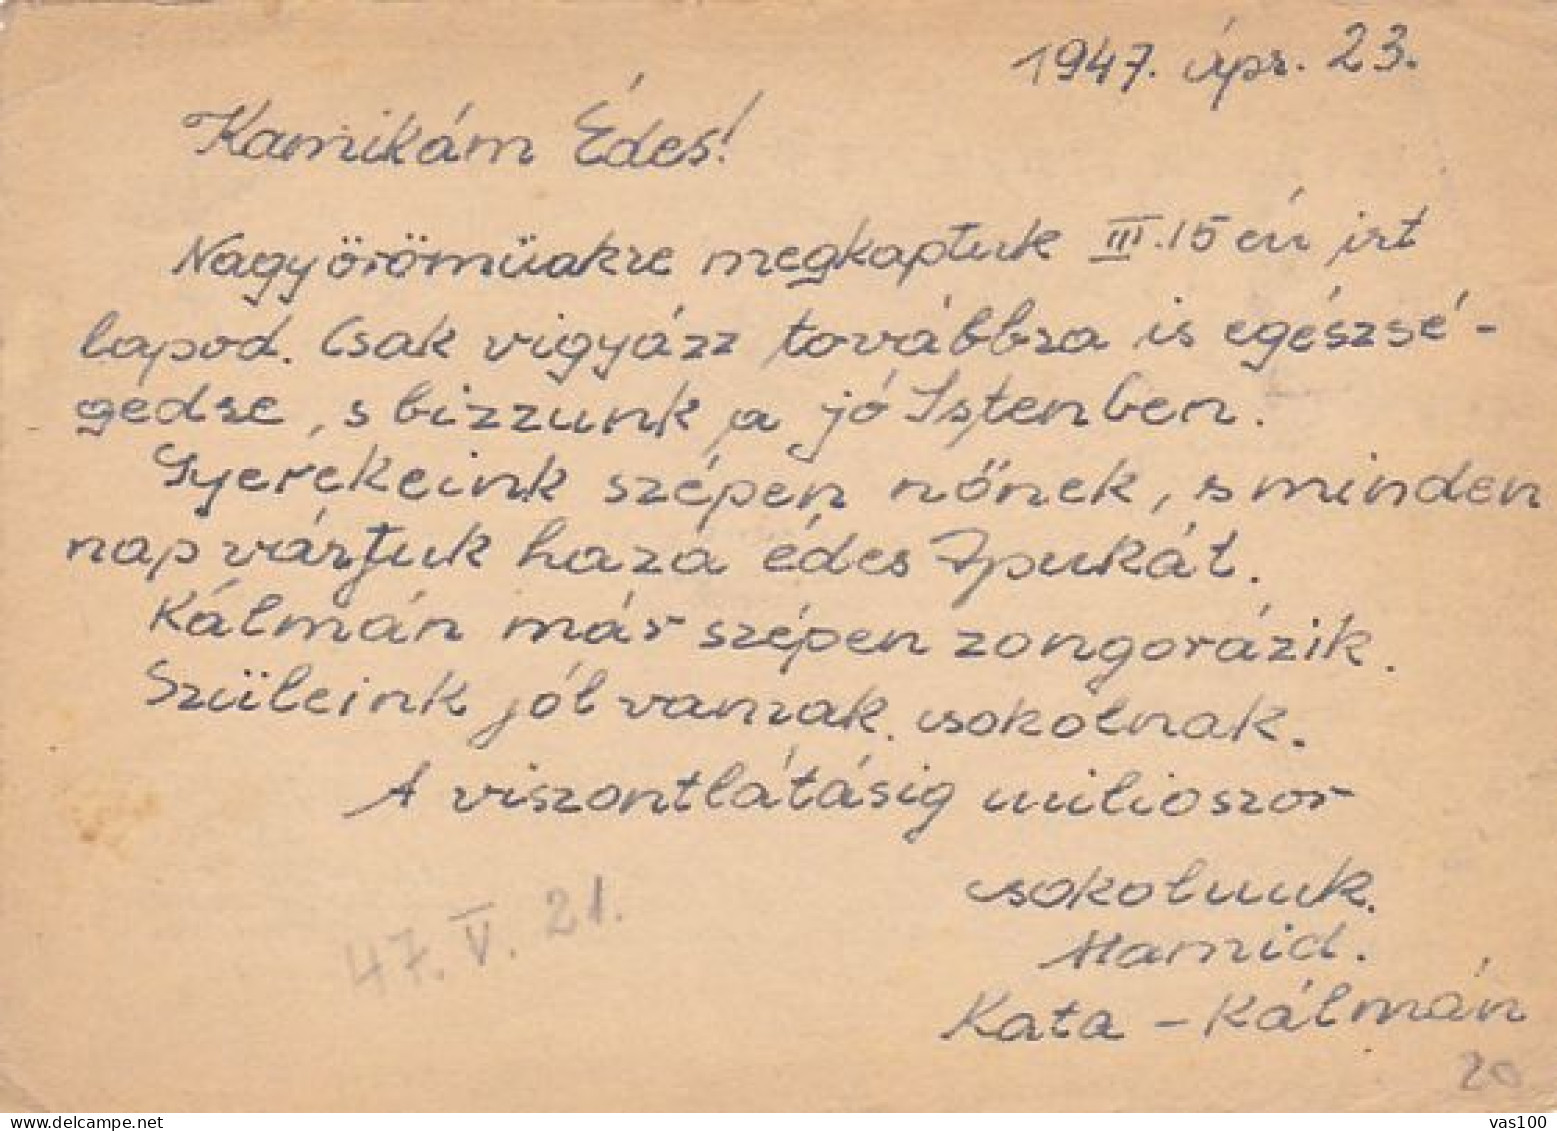 1947. ápr. 23.
Kamikám Édes!
Nagyörömünkre megkaptuk III.15 én irt
lapod. Csak vigyázz továbbra is egészsé-
gedre, s bizzunk a jó Istenben.
Gyerekeink szépen nőnek, s minden
nap várjuk haza édes Apukát.
Kálmán már szépen zongorázik.
Szüleink jól vannak. csokolnak.
A viszontlátásig milioszor
csokolunk.
Mamid.
Kata - Kálmán
47. V. 21.
20
vas100